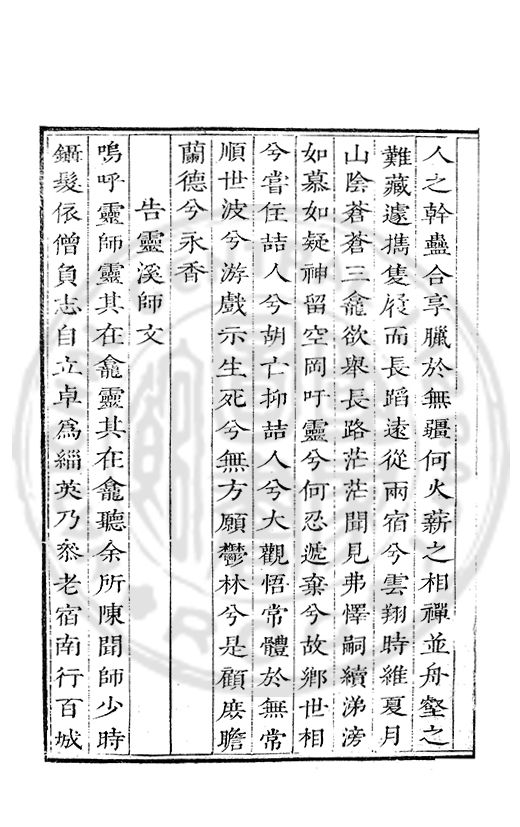 人之幹蠱合享臘於無疆何火薪之相禪並舟壑之
難藏遽擕隻屐而長蹈遠從兩宿兮雲翔時維夏月
山陰蒼蒼三龕欲舉長路茫茫聞見弗懌嗣續涕滂
如慕如疑神留空岡吁靈兮何忍遞棄兮故鄉世相
兮嘗住喆人兮胡亡抑喆人兮大觀悟常體於無常
順世波兮游戲示生死兮無方願鬱林兮是顧庶瞻
蘭德兮永香
告靈溪師文
嗚呼靈師靈其在龕靈其在龕聽余所陳聞師少時
鑷髮依僧負志自立卓爲緇英乃叅老宿南行百城